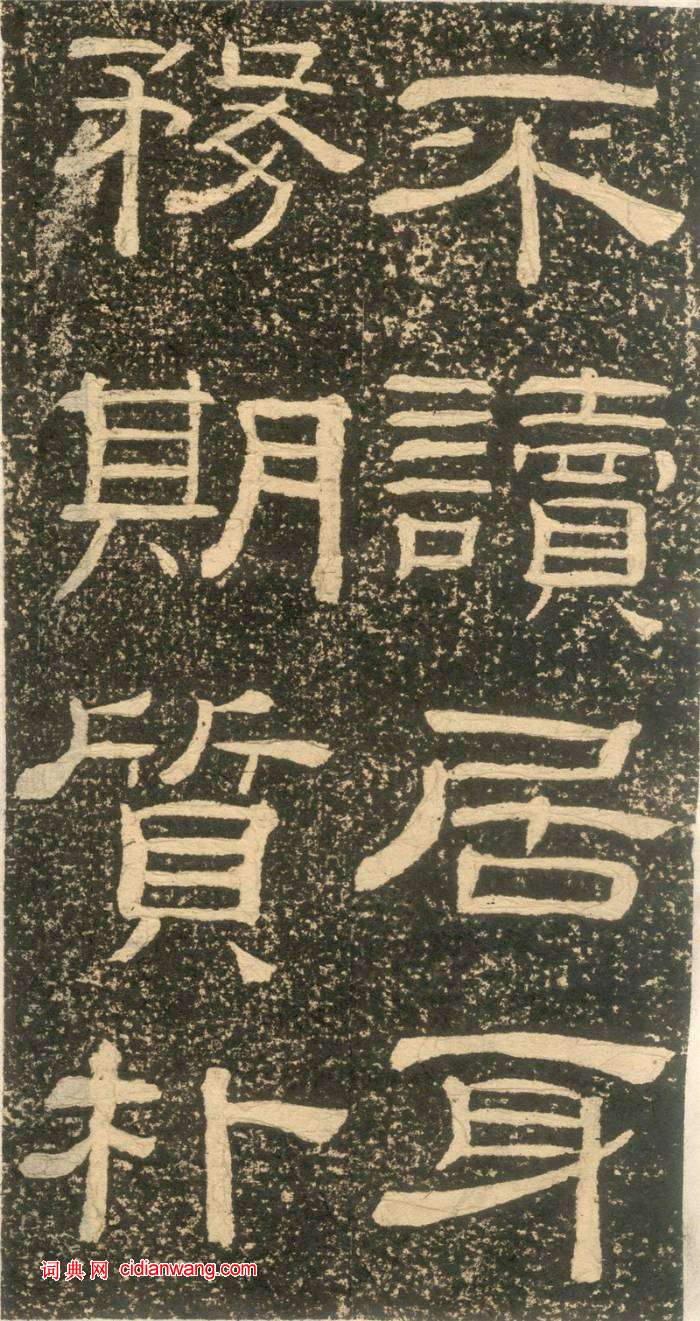 不讀居身
務期質朴
词典网 cidianwang.com